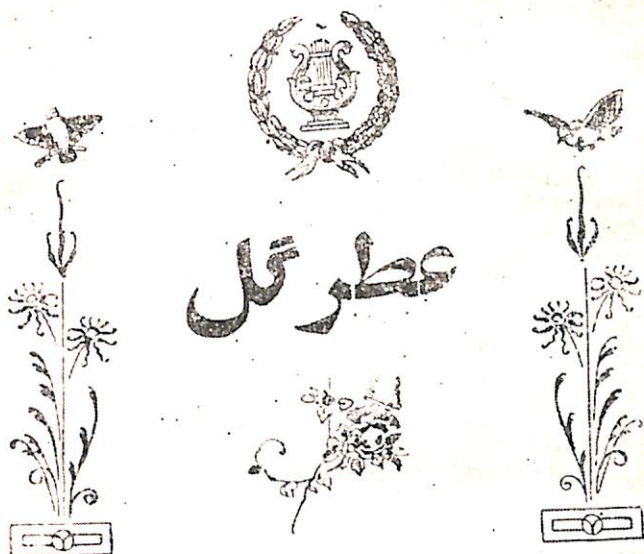 عطر گل